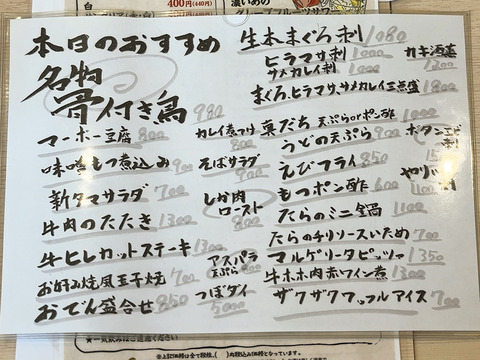 本日のおすすめ
名物
骨付き鳥 980
マーボー豆腐 800
カレイ煮つけ 800
味噌もつ煮込み 900
そばサラダ 800
新タマサラダ 700
しか肉
ロースト
牛肉のたたき 1300
牛ヒレカットステーキ 1300
アスパラ
天ぷら
お好み焼風玉子焼 700
おでん盛合せ 850
つぼダイ 5000
生本まぐろ刺 1080
ヒラマサ刺 1000
サメカレイ刺 1000
カキ酒蒸
まぐろ、ヒラマサ、サメカレイ三点盛 1800
真だち 天ぷらorポン酢 1000
うどの天ぷら 900
ボタンエビ
刺
えびフライ 850
もつポン酢 600
たらのミニ鍋 1100
たらのチリソースいため 700
マルゲリータピッツァ 1350
牛ホホ肉赤ワイン煮 1300
ザクザクワッフルアイス 700